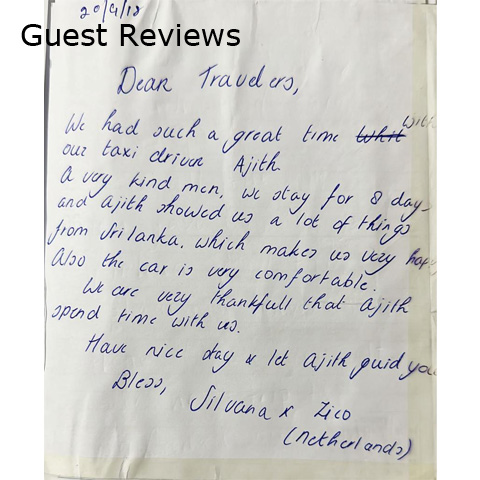 20/9/18
Guest Reviews
Dear Travelers,
We had such a great time Whit with
our taxi driver Ajith.
A very kind men, we stay for 8 day
and Ajith showed us a lot of things
from Srilanka, which makes us very happy
Also the car is very comfortable.
We are very thankfull that Ajith
spend time with us.
Have nice stay & let Ajith guid you
Bless,
Silvana & Zico
(Netherlands)